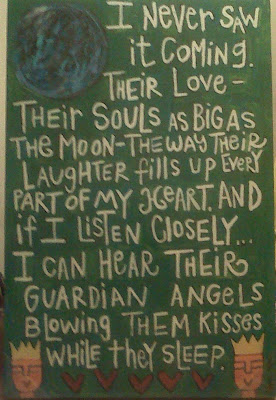 I NEVER SAW
it COMING.
THEIR LOVE-
THEIR SOULS AS BIG AS
THE MOON-THE WAY THEIR
LAUGHTER fills UP EVERY
PART OF MY HEART. AND
if I LISTEN CLOSELY...
I CAN HEAR THEIR
GUARDIAN ANGELS
BLOWING THEM KISSES
WHILE tHEY SLEEP.